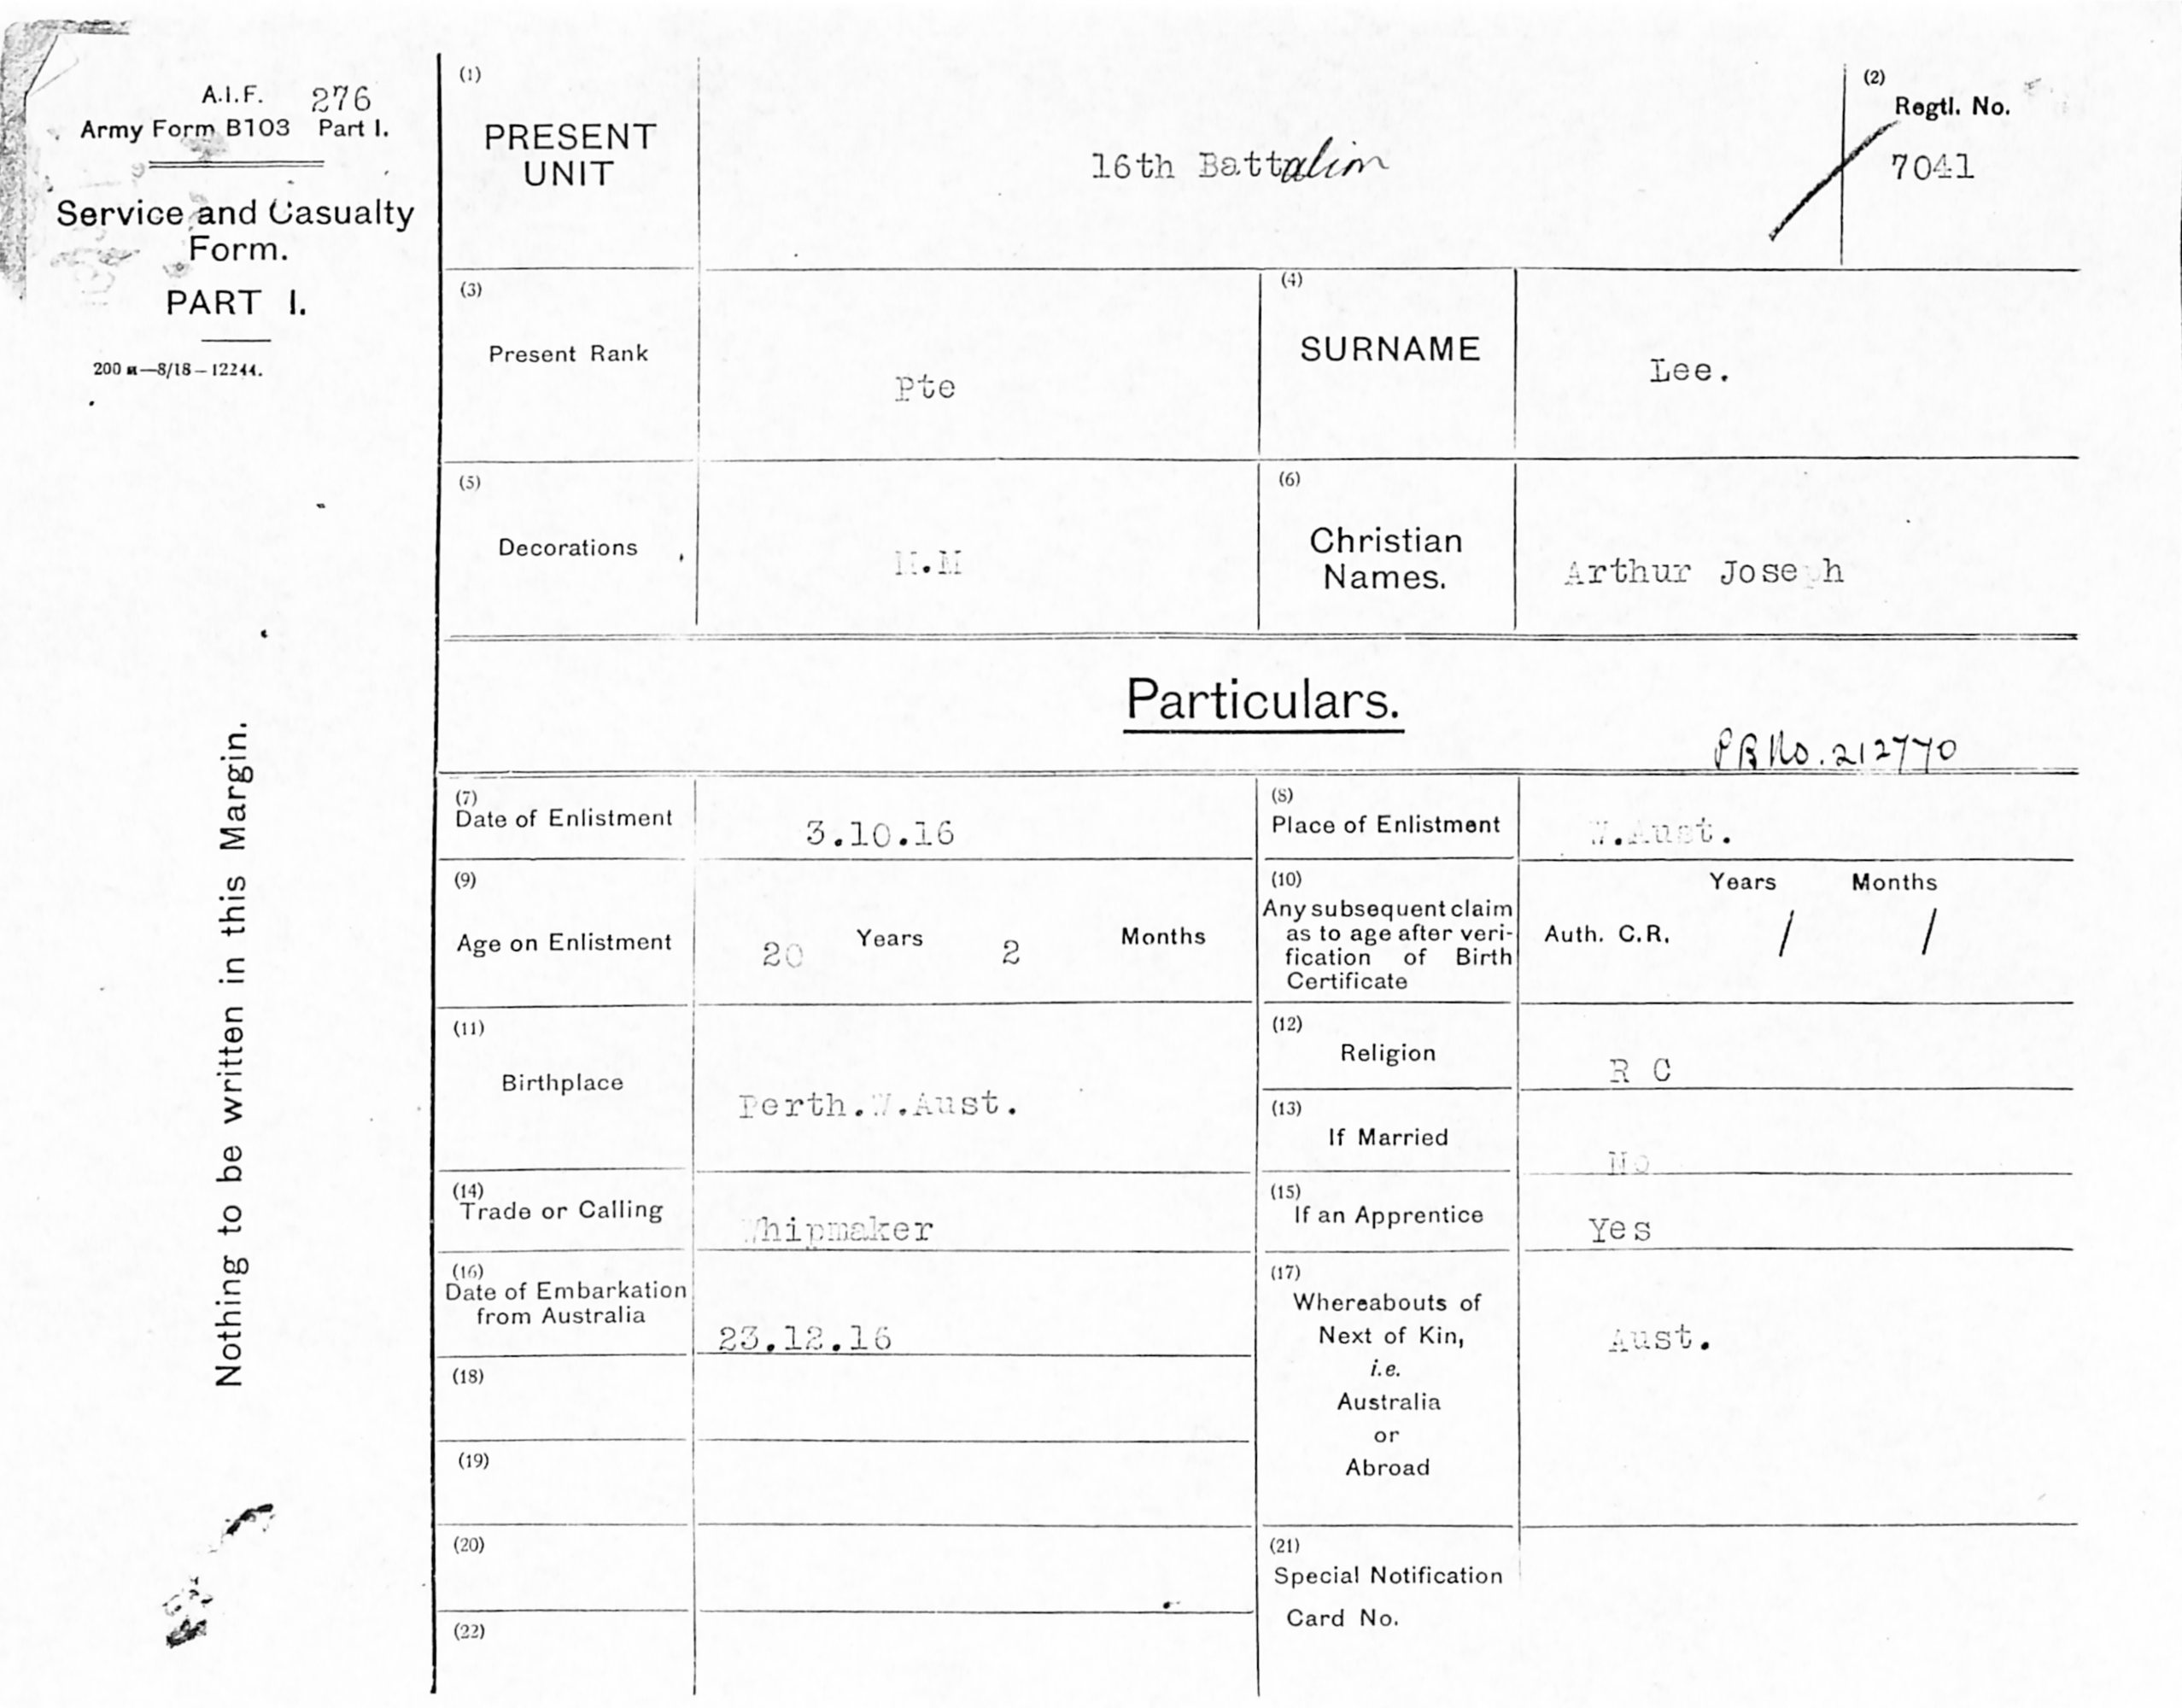 A.I.F. 276
Army Form B103 Part I.
Service and Casualty
Form.
PART I.
200 M—8/18—12244.
Nothing to be written in this Margin.
(1)
PRESENT
UNIT
16th Battalion
(2)
Regtl. No.
7041
(3)
Present Rank
Pte
(4)
SURNAME
Lee.
(5)
Decorations
M.M
(6)
Christian
Names.
Arthur Joseph
Particulars.
PR No. 212770
(7)
Date of Enlistment
3.10.16
(8)
Place of Enlistment
W.Aust.
(9)
Age on Enlistment
20 Years 2 Months
(10)
Any subsequent claim
as to age after veri-
fication of Birth
Certificate
Years Months
Auth. C.R. / /
(11)
Birthplace
Perth.W.Aust.
(12)
Religion
R C
(13)
If Married
No
(14)
Trade or Calling
Whipmaker
(15)
If an Apprentice
Yes
(16)
Date of Embarkation
from Australia
23.12.16
(17)
Whereabouts of
Next of Kin,
i.e.
Australia
or
Abroad
Aust.
(18)
(19)
(20)
(21)
Special Notification
Card No.
(22)